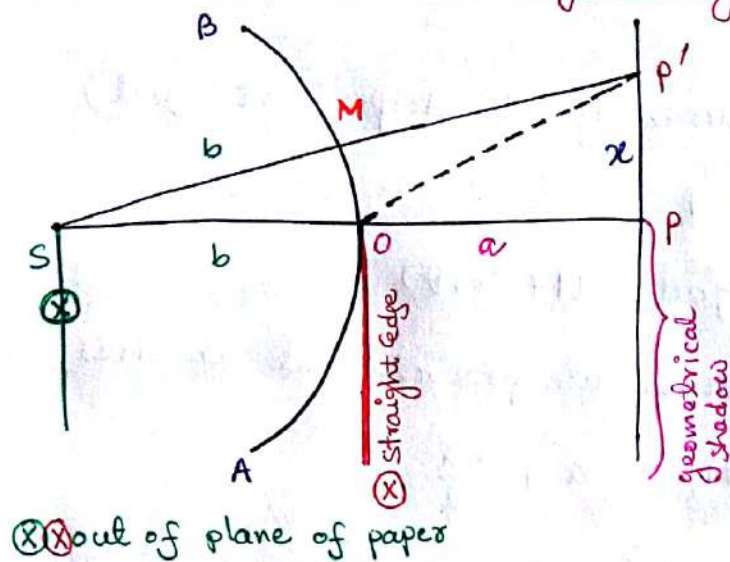 B
P'
M
b
x
S
b
O
a
P
Straight edge
geometrical
shadow
A
ⓧⓧout of plane of paper